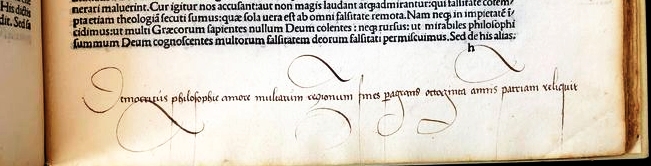 His dictis
dit. Sed sa
nerari maluerint. Cur igitur nos accusant: aut non magis laudant atq; admirantur: qui falsitate cotem/
pta etiam theologiā secuti sumus: quæ sola uera est ab omni falsitate remota. Nam neq; in impietatē ī/
cidimus: ut multi Græcorum sapientes nullum Deum colentes: neq; rursus: ut mirabiles philosophi
summum Deum cognoscentes multorum falsitatem deorum falsitati permiscuimus. Sed de his alias.
h
Democritus philosophie amore multarum regionum fines pagrans octoginta annis patriam reliquit